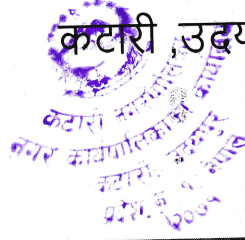 कटारी ,उदय
कटारी नगरपालिका
नगर कार्यपालिकाको कार्यालय
कटारी, उदयपुर
प्रदेश नं. १ नेपाल